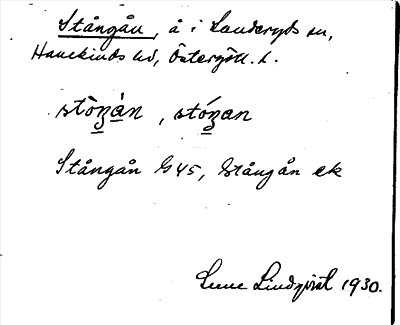 Stångån, å i Landeryds sn,
Hanekinds hd, Östergötl. l.
stòŋàn, stóŋan
Stångån G45, Stångån ek
Sune Lindqvist 1930.